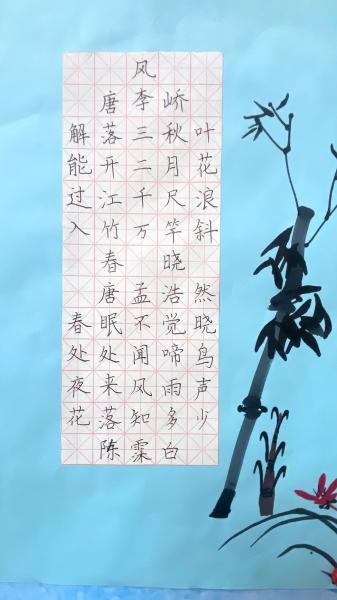 风
唐李峤
解落三秋叶
能开二月花
过江千尺浪
入竹万竿斜
春晓
唐孟浩然
春眠不觉晓
处处闻啼鸟
夜来风雨声
花落知多少
陈霂白